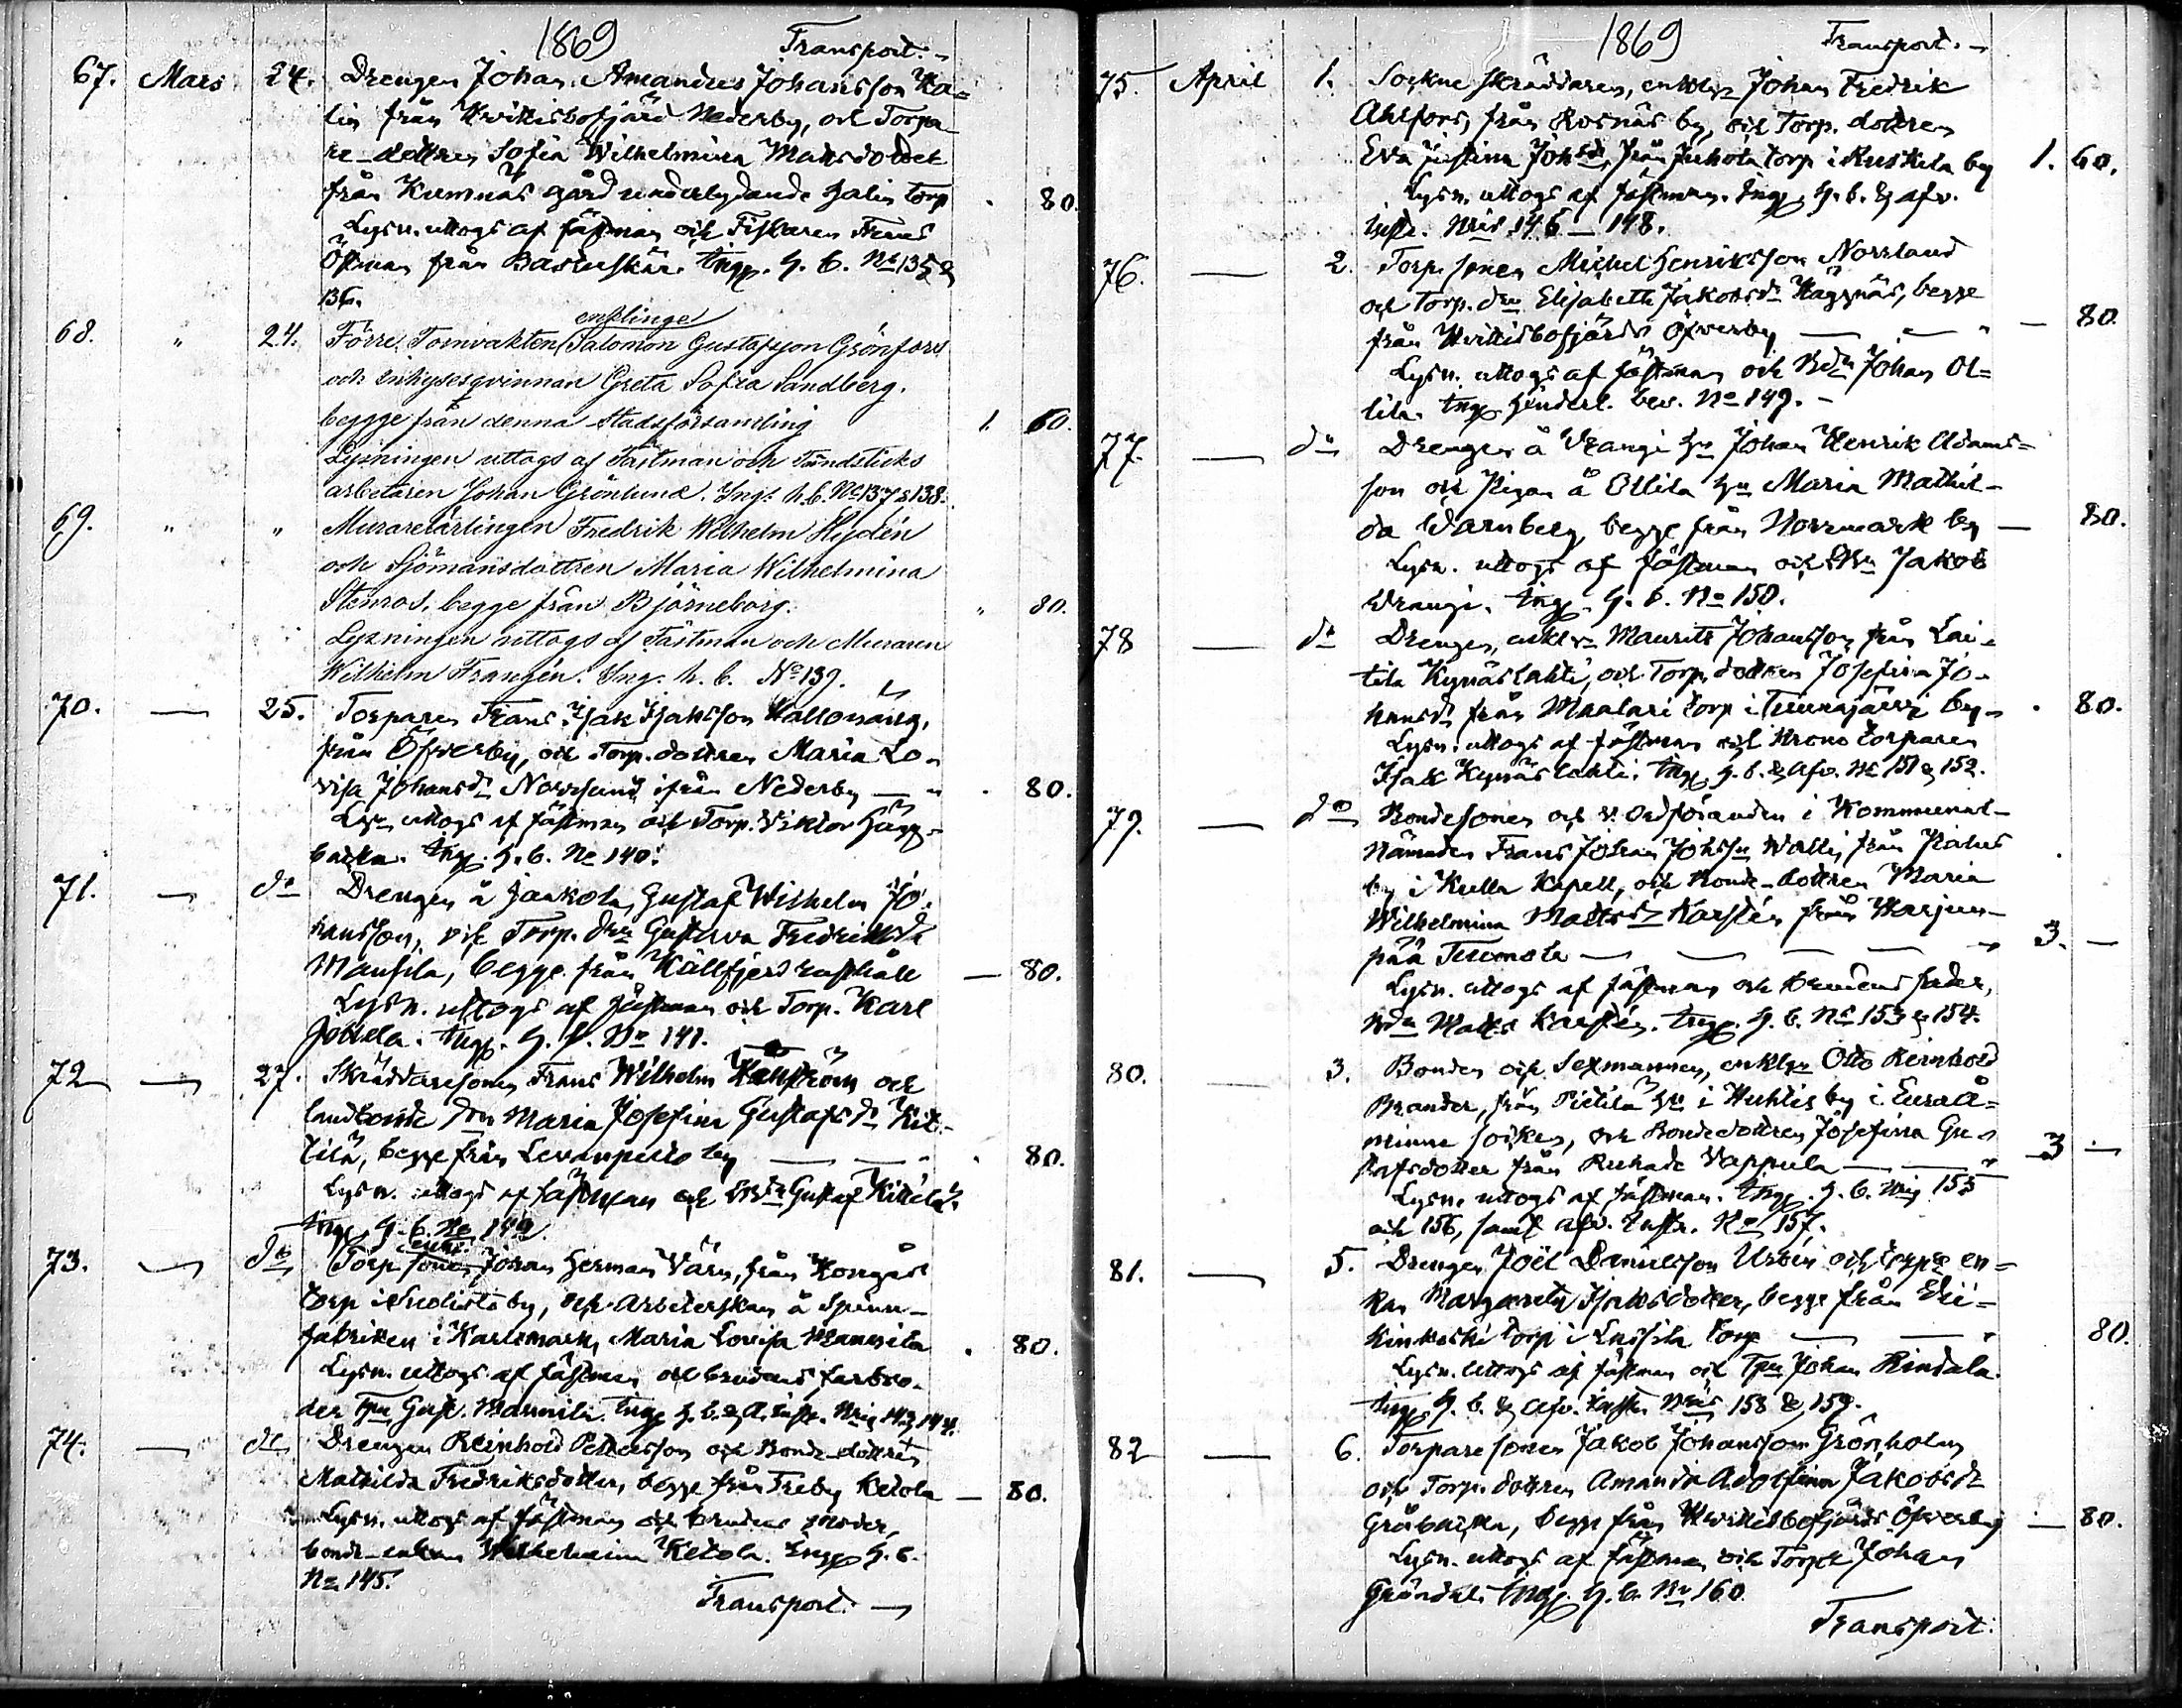 1869 Transport.
67. Mars 24. Drengen Johan Amandus Johansson Ka=
lin från Hvittisbofjärd Nederby, och Torpa-
re-dottren Sofia Wilhelmina Matsdotter
från Kumnäs gård underlydande torp . 80.
Lysn. uttogs af fästman och Fiskaren Frans
Östman från Bastuskär. Ingg. h. b. No 135 &
136.
enklinge
68. " 24. Förre Tornvakten Salomon Gustafsson Grönfors
och inhysesqvinnan Greta Sofia Sandberg.
beggge från denna Stadsförsamling 1. 60.
Lysningen uttogs af Fästman och Tändsticks
arbetaren Johan Grönlund. Ing. h. b. No 137 & 138.
69. " " Murarelärlingen Fredrik Wilhelm Hydén
och Sjömansdottren Maria Wilhelmina
Stenros, begge från Björneborg. " 80.
Lysningen uttogs af Fästman och Muraren
Wilhelm Frangén. Ing. h. b. No 139.
70. — 25. Torparen Frans Isak Isaksson
från Öfverby, och Torp. dottren Maria Lo-
visa Johansdr Norrsund ifrån Nederby — . 80.
Lysn uttogs af fästman och Torp. Viktor Hägg-
backa. Ingg. h. b. No 140.
71. — do Drengen å Jaakola, Gustaf Wilhelm Jo-
hansson, och Torp. drn Gustava Fredriksdr
Mansila, begge från Källfjerd — 80.
Lysn. uttogs af fästman och Torp. Karl
Ingg. h. b. No 141.
72 — 27. Skräddaresonen Frans Wilhelm och
landbonde drn Maria Josefina Gustafsdr Kit-
tilä, begge från Levanpelto by — . 80.
Lysn. uttogs af fästman och Gustaf Kittilä.
Ingg. h. b. No 142
73. — do Torp sonen, Johan Herman Värn, från
torp i by, och Arbeterskan å Spinn-
fabriken i Maria Lovisa Mannila . 80.
Lysn. uttogs af fästman och brudens farbro-
der Tpn Gust. Mannila. Ingg h. b. & A. 143, 144.
74. — do Drengen Reinhold Pettersson och Bonde-dottren
Mathilda Fredriksdotter, begge från Treby Ketola — 80.
Lysn. uttogs af fästman och brudens moder,
bonde-enkan Wilhelmina Ketola. Ingg h. b.
No 145.
Transport. —
1869 Transport. —
75. April 1. Sockne skräddaren, enkln Johan Fredrik
Ahlfors, från Rosnäs by, och Torp. dottren
Eva Justina Johsdr, från Juhola torp i Ruskila by 1. 60.
Lysn. uttogs af fästman. Ingg. h. b. & afv.
Nris 146 — 148.
76. — 2. Torp. sonen Michel Henriksson Norrland
och torp. drn Elisabeth Jakobsdr Häggnäs, begge
från Hvittisbofjärds Öfverby — — 80.
Lysn. uttogs af fästman och Bdn Johan Ol=
lila. Ingg hinderl. bev. No 149. —
77. — do Drengen å Vrangi hn Johan Henrik Adams=
son och Pigan å Ollila hn Maria Mathil-
da Warnberg, begge från Norrmark by — 80.
Lysn. uttogs af fästman och Jakob
Vrangi. Ingg. h. b. No 150.
78 — do Drengen, enkln Maurits Johansson från Lai-
tila Kynäslahti, och Torp. dottren Josefina Jo-
hansdr från Maalari torp i Tuunajärvi by . 80.
Lysn. uttogs af fästman och Krono torparen
Isak Kynäslahti. Ingg h. b. & Afv. No 151 & 152.
79. — do Bondesonen och v. Ordföranden i Kommunal-
Nämnden Frans Johan Johsson från
by i Kulla Kapell, och Bonde-dottren Maria
Wilhelmina Mattsdr Karstén från Harjun-
pää Tuomola — — — — 3. —
Lysn. uttogs af fästman och brudens fader,
Bdn Matts Karstén. Ingg. h. b. No 153 & 154.
80. 3. Bonden och Sexmannen, enkln Otto Reinhold
Brander, från Pietilä hn i Huhtis by i Euraå=
minne socken, och Bondedottren Josefina Gu-
stafsdotter från Ruhade Vappula — — 3 —
Lysn. uttogs af fästman. Ingg. h. b. 155
och 156, samt afv. No 157.
81. — 5. Drengen Joël Danielsson Urbin och torpe en=
kan Margareta Isaksdotter, begge från
torp i Lassila torp — — 80.
Lysn. uttogs af fästman och Tpn Johan Rindala.
Ingg. h. b. & afv. Nris 158 & 159.
82 — 6. Torpare sonen Jakob Johansson Grönholm
och Torp. dottren Amanda Adolfina Jakobsdr
Gråbacka, begge från Hvittisbofjärds Öfverby — 80.
Lysn. uttogs af fästman och Torpn Johan
Gröndal. Ingg. h. b. No 160
Transport.